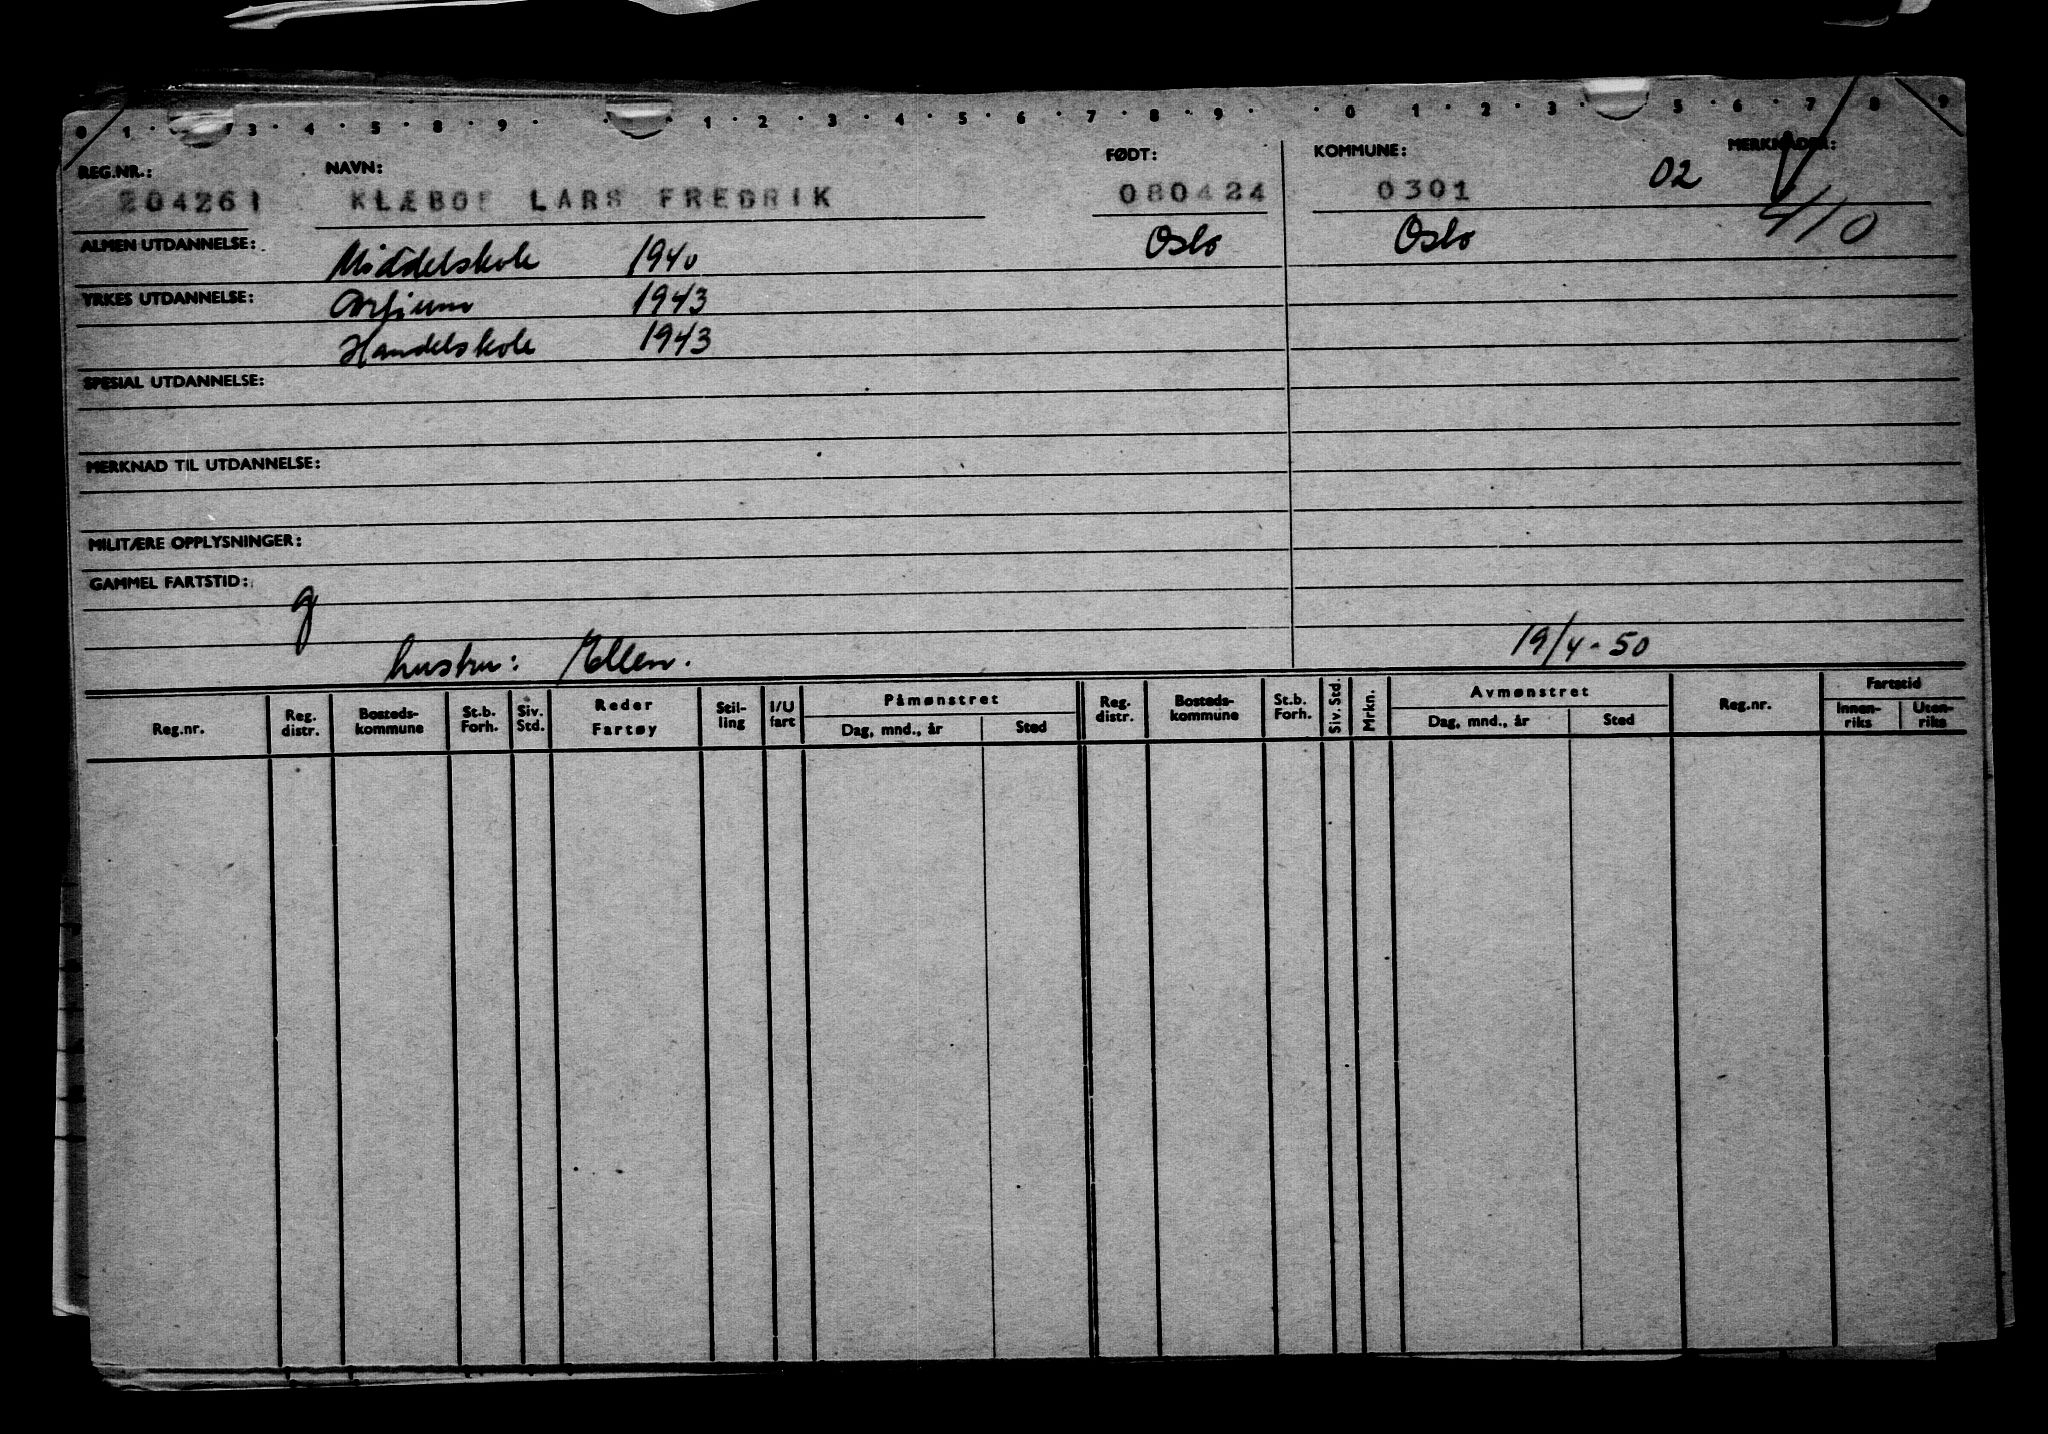 0 1 3 4 5 8 9 1 2 3 4 5 6 7 8 9 0 1 2 3 5 6 7 8 9
REG.NR.: NAVN: FØDT: KOMMUNE: MERKNADER:
204261 KLÆBOE LARS FREDRIK 080424 0301 02 410
ALMEN UTDANNELSE: Middelskole 1940 Oslo Oslo
YRKES UTDANNELSE: Artium 1943
Handelskole 1943
SPESIAL UTDANNELSE:
MERKNAD TIL UTDANNELSE:
MILITÆRE OPPLYSNINGER:
GAMMEL FARTSTID:
g
hustru: Ellen. 19/4-50
Reg.nr. Reg. distr. Bosteds-kommune St.b. Forh. Siv. Std. Reder Fartøy Stil-ling I/U fart Påmønstret Dag, mnd., år Sted Reg. distr. Bosteds-kommune St.b. Forh. Siv. Std. Mrkn. Avmønstret Dag, mnd., år Sted Reg.nr. Fartstid Innen-riks Uten-riks